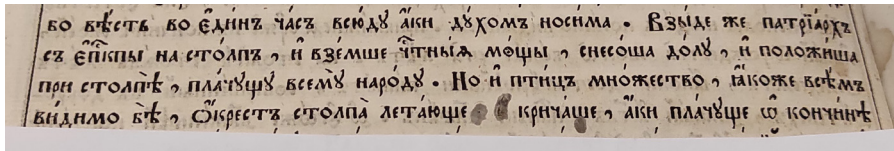 бо вѣ́сть во є҆ди́нъ ча́съ всю́дꙋ а҆́ки дꙋ́хомъ носи́ма . Взы́де же патрїа́рхъ
съ є҆пⷭ҇кпы на сто́лпъ , и҆ взе́мше чⷭ҇тны́ѧ мо́щы , снесо́ша до́лꙋ , и҆ положи́ша
при столпѣ̀ , пла́чꙋщꙋ всемꙋ̀ наро́дꙋ . Но и҆ пти́цъ мно́жество , ꙗ҆́коже всѣ̑мъ
ви́димо бѣ̀ , ѡ҆́крестъ столпа̀ лета́юще крича́ше , а҆́ки пла́чꙋще ѡ҆ кончи́нѣ